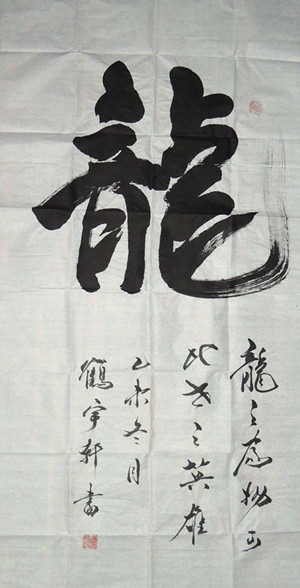 龍
龍之為物可
比世之英雄
乙未冬月
鶴宇軒書